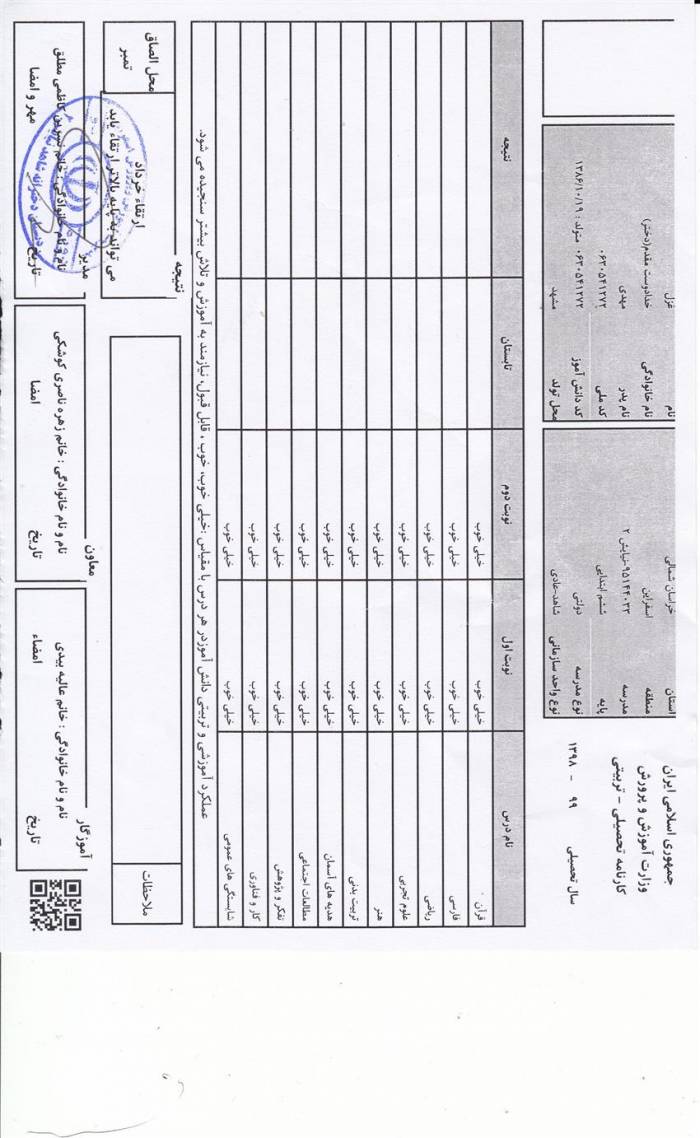 جمهوری اسلامی ایران
وزارت آموزش و پرورش
کارنامه تحصیلی - تربیتی
سال تحصیلی ۹۹ - ۱۳۹۸
استان خراسان شمالی
منطقه اسفراین
مدرسه ۹۵۱۴۴۰۳۳-نیایش ۲
پایه ششم ابتدایی
نوع مدرسه دولتی
نوع واحد سازمانی شاهد-عادی
نام غزل
نام خانوادگی خدادوست مقدم(دختر)
نام پدر مهدی
کد ملی ۰۶۳۰۵۴۱۲۷۲
کد دانش آموز ۰۶۳۰۵۴۱۲۷۲ متولد : ۱۳۸۶/۱۰/۱۹
محل تولد مشهد
نام درس نوبت اول نوبت دوم تابستان نتیجه
قرآن خیلی خوب خیلی خوب
فارسی خیلی خوب خیلی خوب
ریاضی خیلی خوب خیلی خوب
علوم تجربی خیلی خوب خیلی خوب
هنر خیلی خوب خیلی خوب
تربیت بدنی خیلی خوب خیلی خوب
هدیه های آسمان خیلی خوب خیلی خوب
مطالعات اجتماعی خیلی خوب خیلی خوب
تفکر و پژوهش خیلی خوب خیلی خوب
کار و فناوری خیلی خوب خیلی خوب
شایستگی های عمومی خیلی خوب خیلی خوب
عملکرد آموزشی و تربیتی دانش آموزدر هر درس با مقیاس :خیلی خوب، خوب ، قابل قبول، نیازمند به آموزش و تلاش بیشتر سنجیده می شود.
ملاحظات
نتیجه
ارتقاء خرداد
می تواند به پایه بالاتر ارتقاء یابد
محل الصاق
تمبر
آموزگار
نام و نام خانوادگی : خانم عالیه بیدی
امضاء تاریخ
معاون
نام و نام خانوادگی : خانم زهره ناصری کوشکی
امضا تاریخ
مدیر
نام و نام خانوادگی : خانم نسرین کاظمی مطلق
مهر و امضا تاریخ